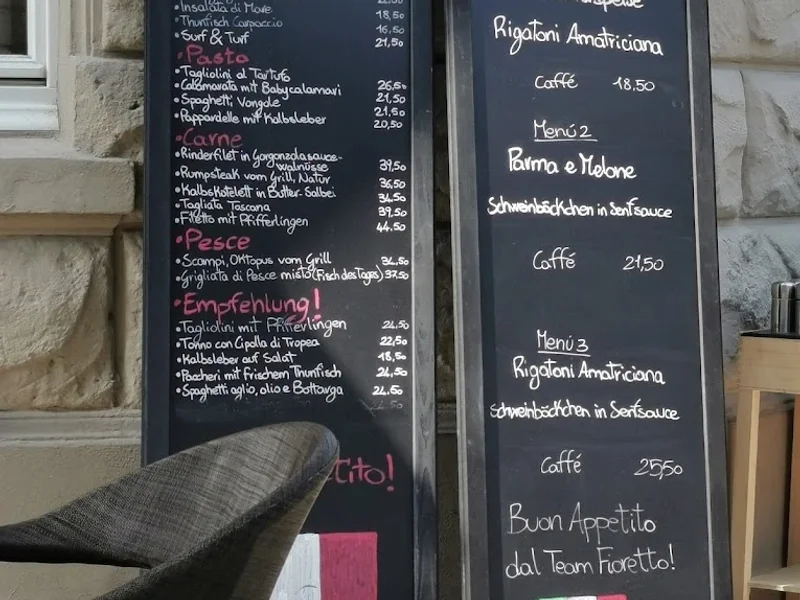 Insalata di Mare
18,50
Thunfisch Carpaccio
16,50
Surf & Turf
21,50
Pasta
Tagliolini al Tartufo
26,50
Calamarata mit Babycalamari
21,50
Spaghetti Vongole
21,50
Pappardelle mit Kalbsleber
20,50
Carne
Rinderfilet in Gorgonzolasauce-
walnüsse
39,50
Rumpsteak vom Grill, Natur
36,50
Kalbskotelett in Butter-Salbei
34,50
Tagliata Toscana
39,50
Filetto mit Pfifferlingen
44.50
Pesce
Scampi, Oktopus vom Grill
34,50
Grigliata di Pesce misto (Fisch des Tages) 37,50
Empfehlung!
Tagliolini mit Pfifferlingen
24,50
Tonno con Cipolla di Tropea
22,50
Kalbsleber auf Salat
18,50
Paccheri mit frischem Thunfisch
24,50
Spaghetti aglio, olio e Bottarga
24.50
tito!
Rigatoni Amatriciana
Caffé 18.50
Menú 2
Parma e Melone
Schweinbäckchen in Senfsauce
Caffé 21,50
Menú 3
Rigatoni Amatriciana
Schweinbäckchen in Senfsauce
Caffé 25,50
Buon Appetito
dal Team Fioretto!